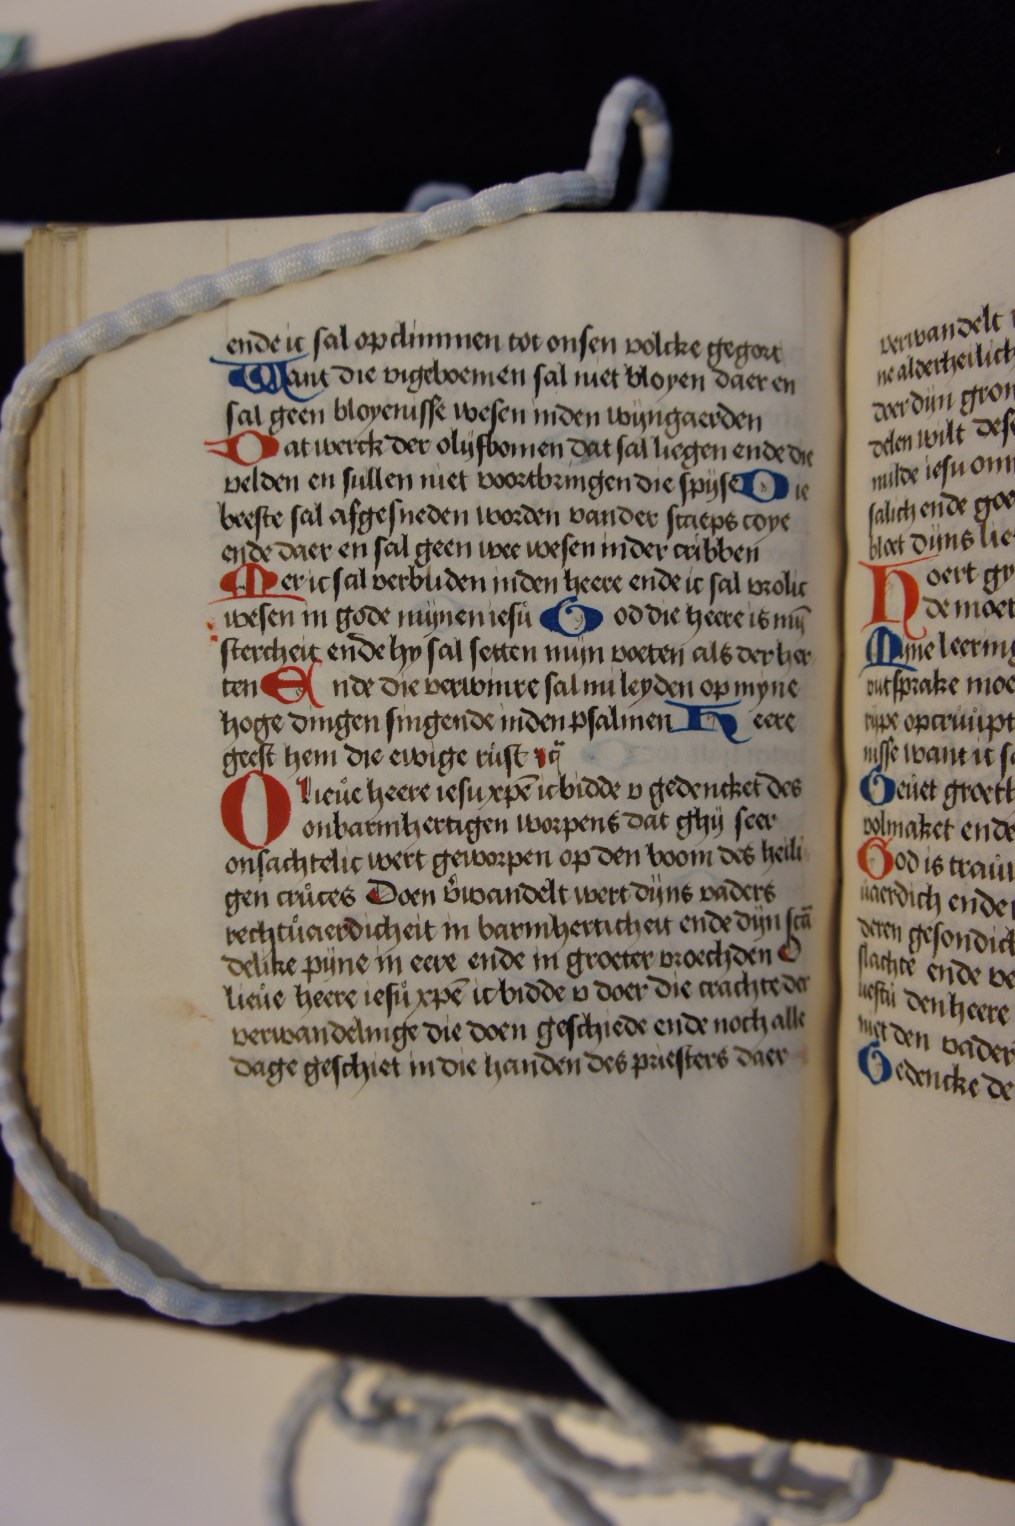 ende ic sal opclimmen tot onsen volcke gegort
Want die vigeboemen sal niet bloyen daer en
sal geen bloyenisse wesen inden wijngaerden
Dat werck der olijfbomen dat sal liegen ende die
velden en sullen niet voortbringen die spijse Die
beeste sal afgesneden worden vander scaeps coye
ende daer en sal geen wee wesen inder cribben
Mer ic sal verbliden inden heere ende ic sal vrolic
wesen in gode mijnen iesu God die heere is mij̄
stercheit ende hy sal setten mijn voeten als der her
ten Ende die verwinre sal mi leyden op myne
hoge dingen singende inden psalmen Heere
geeft hem die ewige rust
O lieue heere iesu xp̄e ic bidde v gedencket des
onbarmhertigen worpens dat ghij seer
onsachtelic wert geworpen op den boom des heili
gen cruces Doen v̓wandelt wert dijns vaders
rechtuaerdicheit in barmherticheit ende dijn scā
delike pijne in eere ende in groeter vroechden O
lieue heere iesu xp̄e ic bidde v doer die crachte der
verwandelinge die doen geschiede ende noch alle
dage geschiet in die handen des priesters daer
verwandelt
ne alderheilich
doer dijn gron
delen wilt dese
milde iesu om
salich ende goe
bloet dijns lie
Hoert gy
de moet
Mijne leering
vutsprake moe
rijpe opcruijpt
nisse want ic s
Geuet groeth
volmaket ende
God is trauw
uaerdich ende
deren gesondich
slachte ende ve
den heere
niet den vader
Gedencke de